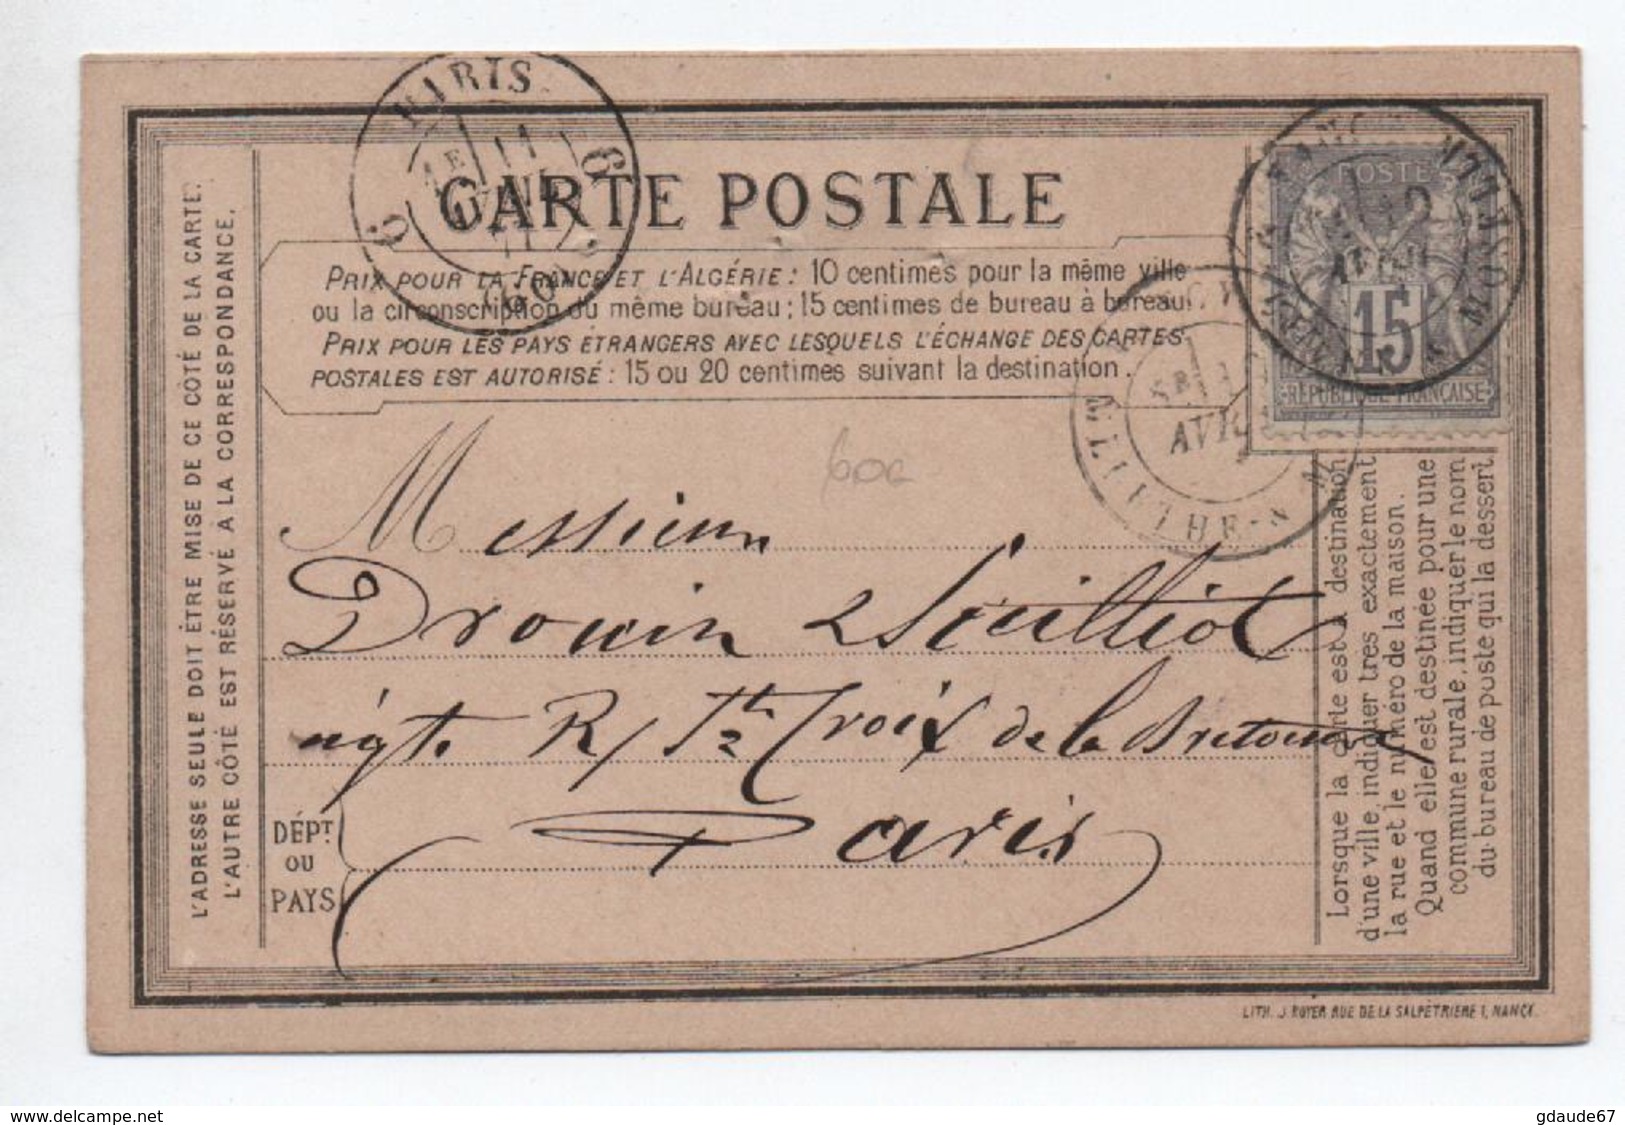 PARIS
11
60
CARTE POSTALE
PRIX POUR LA FRANCE ET L'ALGÉRIE: 10 centimes pour la même ville
ou la circonscription du même bureau; 15 centimes de bureau à bureau.
PRIX POUR LES PAYS ÉTRANGERS AVEC LESQUELS L'ÉCHANGE DES CARTES
POSTALES EST AUTORISÉ: 15 ou 20 centimes suivant la destination.
POSTE
15
RÉPUBLIQUE FRANÇAISE
AVRIL
L'ADRESSE SEULE DOIT ÊTRE MISE DE CE CÔTÉ DE LA CARTE.
L'AUTRE CÔTÉ EST RÉSERVÉ À LA CORRESPONDANCE.
600
Messieurs
Drouin &
Paris
R/ Ste Croix de la Bretonnerie
DÉPT.
OU
PAYS
Lorsque la carte est à destination
d'une ville, indiquer très exactement
la rue et le numéro de la maison.
Quand elle est destinée pour une
commune rurale, indiquer le nom
du bureau de poste qui la dessert.
LITH. J. ROYER RUE DE LA SALPÊTRIÈRE 1, NANCY.
www.delcampe.net
gdaude67